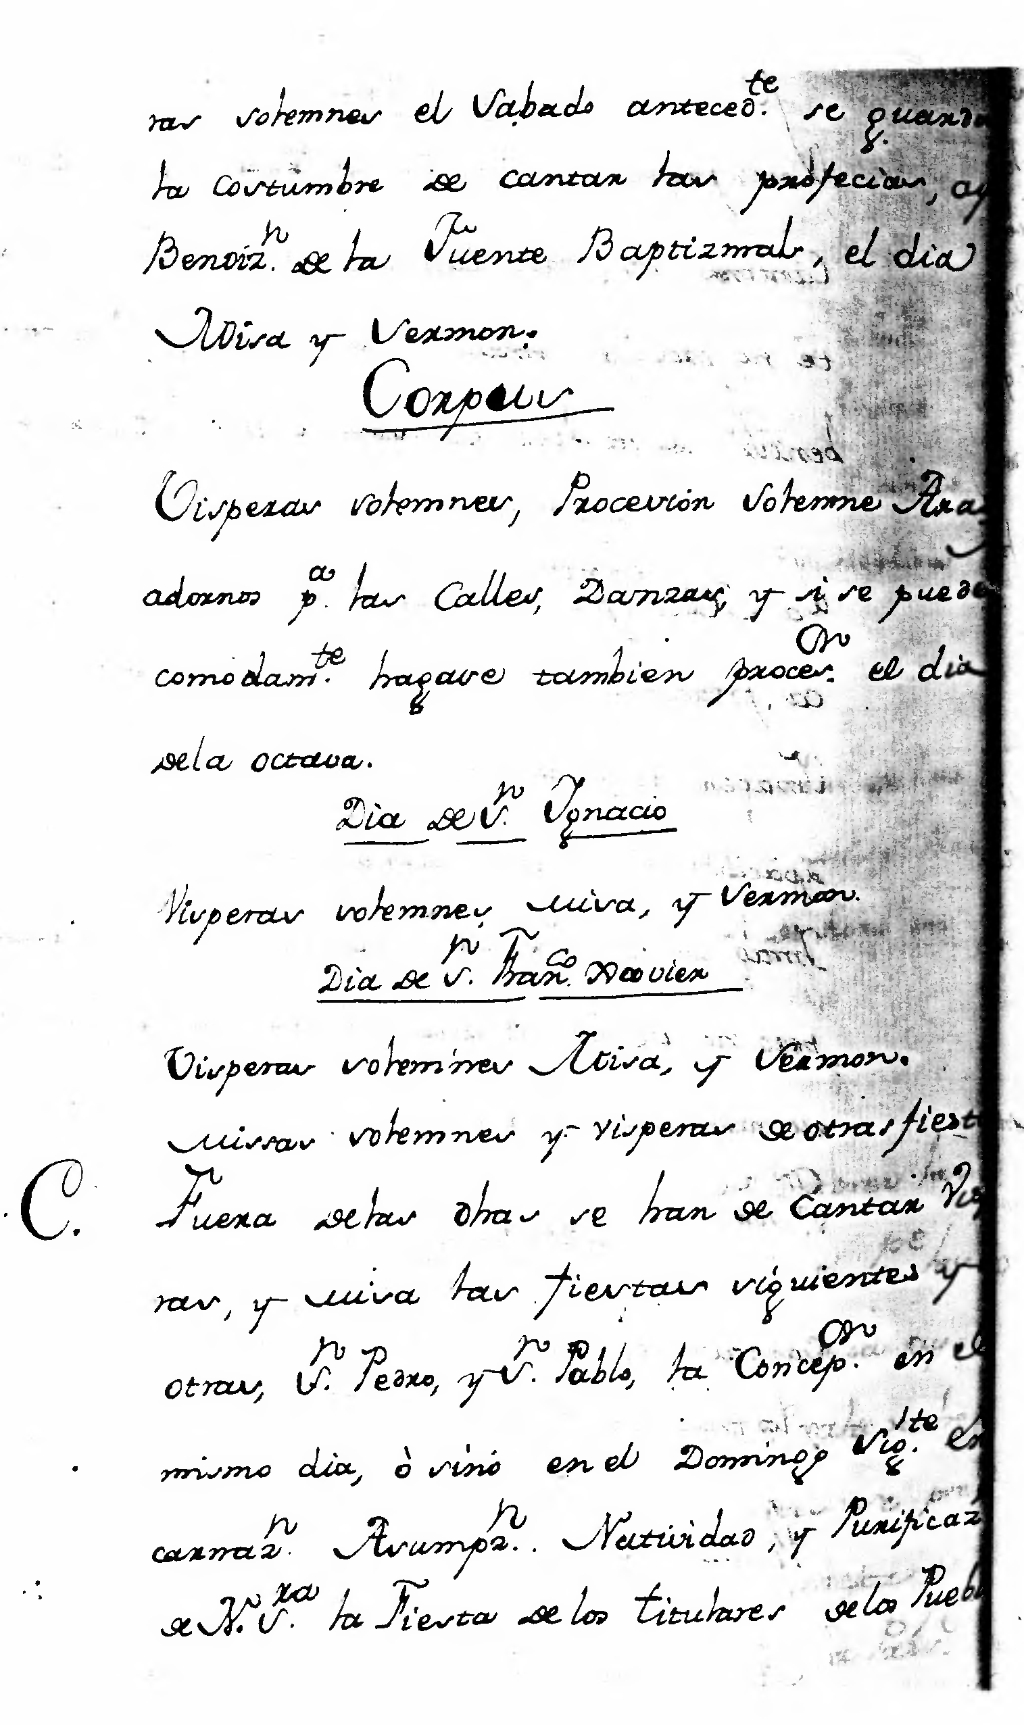 ras solemnes el Sabado anteced.te se guarda
la costumbre de cantar las profecias,
Bendiz.n de la Fuente Baptizmal, el dia
Misa y Sermon.
Corpus
Visperas solemnes, Procesión Solemne
adornos p.a las Calles, Danzas, y si se puede
comodam.te hagase tambien proces.on el dia
dela octava.
Dia de S.n Ygnacio
Visperas solemnes misa, y Sermon.
Dia de S.n Fran.co Xavier
Visperas solemnes Misa, y Sermon.
missas solemnes y visperas de otras fiest
C. Fuera delas dhas se han de Cantar Vis
ras, y misa las fiestas siguientes y
otras, S.n Pedro, y S.n Pablo, la Concep.on en el
mismo dia, ò sinò en el Domingo sig.te En
carnaz.n Asumpz.n. Natividad, y Purificaz
de N. S.ra la Fiesta de los titulares de los Puebl